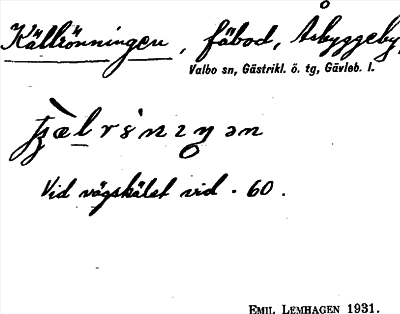 Källrönningen, fäbod, Åsbyggeby,
Valbo sn, Gästrikl. ö. tg, Gävleb. l.
Vid vägskälet vid · 60.
EMIL LEMHAGEN 1931.